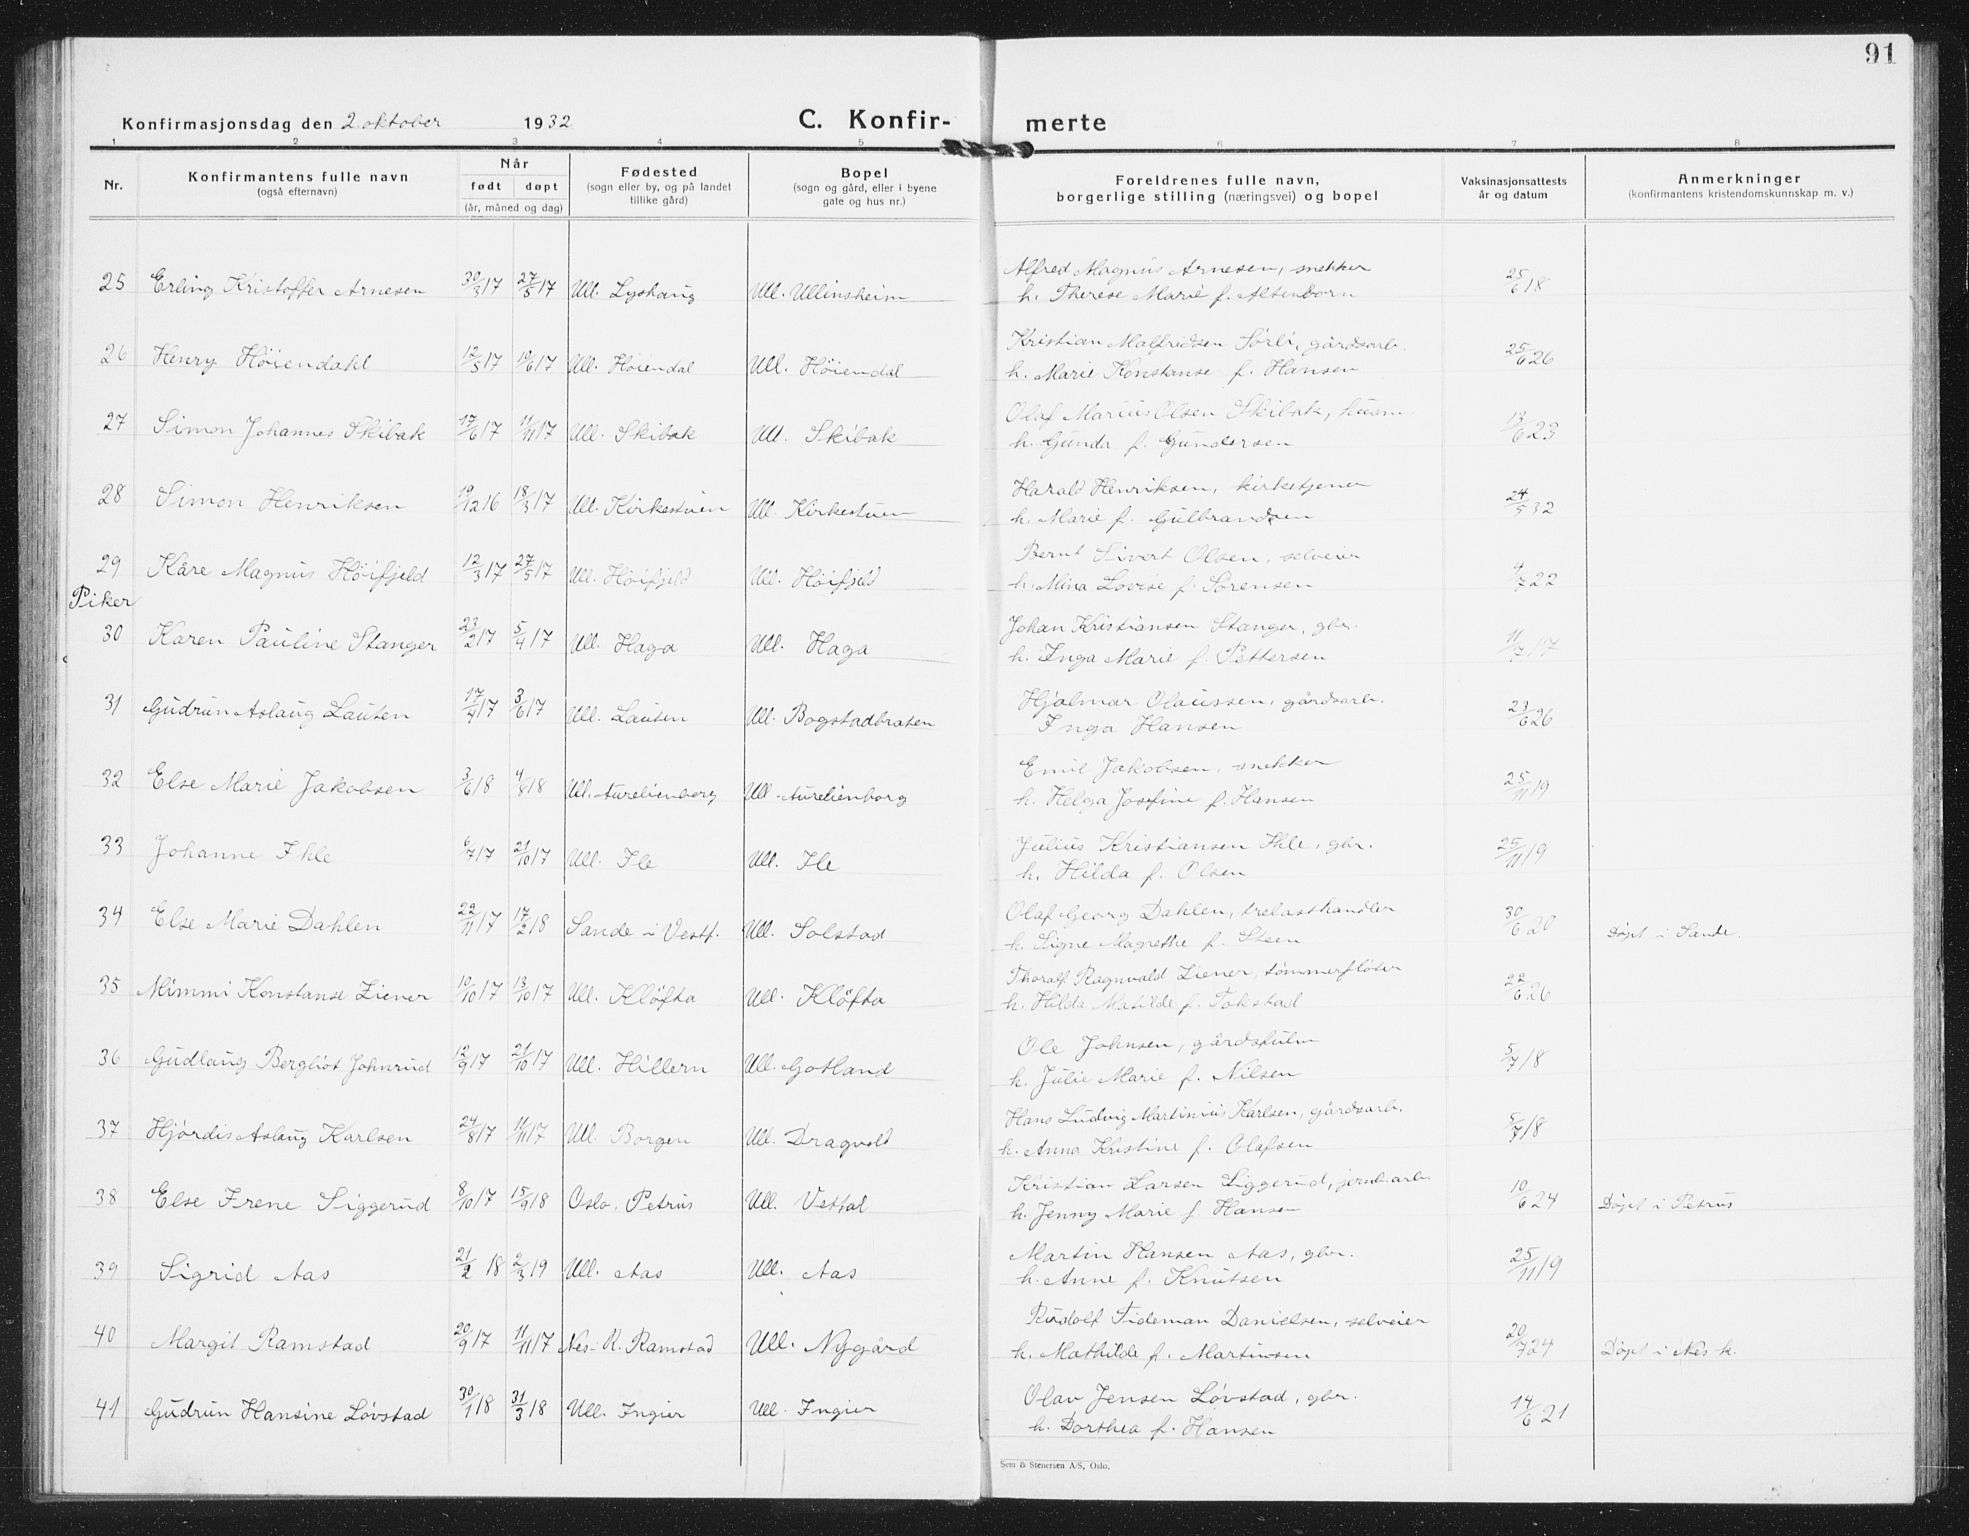 91
Konfirmasjonsdag den 2. oktober 1932 C. Konfir- merte
1 2 3 4 5 6 7 8
Nr. Konfirmantens fulle navn (også efternavn) Når født døpt (år, måned og dag) Fødested (sogn eller by, og på landet tillike gård) Bopel (sogn og gård, eller i byene gate og hus nr.) Foreldrenes fulle navn, borgerlige stilling (næringsvei) og bopel Vaksinasjonsattests år og datum Anmerkninger (konfirmantens kristendomskunnskap m. v.)
25 Erling Kristoffer Arnesen 30/3 17 27/5 17 Ull. Lyshaug Ull. Ullinsheim Alfred Magnus Arnesen, snekker 25/6 18
h. Therese Marie f. Altenborn
26 Henry Höiendahl 12/5 17 10/6 17 Ull. Höiendal Ull. Höiendal Kristian Malfredsen Sörli, gårdsarb. 25/6 26
h. Marie Konstanse f. Hansen
27 Simon Johannes Skibak 17/6 17 11/11 17 Ull. Skibak Ull. Skibak Olaf Marius Olsen Skibak, husm. 13/6 23
h. Gunda f. Gundersen
28 Simon Henriksen 19/12 16 18/3 17 Ull. Kirkestuen Ull. Kirkestuen Harald Henriksen, kirketjener 24/5 32
h. Marie f. Gulbrandsen
29 Kåre Magnus Höifjeld 12/3 17 27/5 17 Ull. Höifjeld Ull. Höifjeld Bernt Sivert Olsen, selveier 4/7 22
h. Mina Lovise f. Sörensen
Piker
30 Karen Pauline Stanger 23/2 17 5/4 17 Ull. Haga Ull. Haga Johan Kristiansen Stanger, gbr. 11/7 17
h. Inga Marie f. Pettersen
31 Gudrun Aslaug Lauten 17/4 17 3/6 17 Ull. Lauten Ull. Bogstadbråten Hjalmar Olaussen, gårdsarb. 23/6 26
Inga Hansen
32 Else Marie Jakobsen 3/6 18 4/8 18 Ull. Aurelienborg Ull. Aurelienborg Emil Jakobsen, snekker 25/11 19
h. Helga Josefine f. Hansen
33 Johanne Ihle 6/7 17 21/10 17 Ull. Ile Ull. Ile Julius Kristiansen Ihle, gbr. 25/11 19
h. Hilda f. Olsen
34 Else Marie Dahlen 22/11 17 17/2 18 Sande i Vestf. Ull. Solstad Olaf Georg Dahlen, trelasthandler 30/6 20 Döpt i Sande.
h. Signe Magrethe f. Steen
35 Mimmi Konstanse Ziener 10/10 17 13/10 17 Ull. Klöfta Ull. Klöfta Thoralf Ragnvald Ziener, tömmerflöter 22/6 26
h. Hilda Matilde f. Tokstad
36 Gudlaug Bergliot Johnrud 12/9 17 21/10 17 Ull. Hillern Ull. Gotland Ole Johnsen, gårdsfulm 5/7 18
h. Julie Marie f. Nilsen
37 Hjördis Aslaug Karlsen 24/8 17 11/11 17 Ull. Borgen Ull. Dragvold Hans Ludvig Martinius Karlsen, gårdsarb. 5/7 18
h. Anna Kristine f. Olafsen
38 Else Irene Siggerud 8/10 17 15/9 18 Oslo, Petrus Ull. Vettal Kristian Larsen Siggerud, jernb.arb. 10/6 24 Döpt i Petrus
h. Jenny Marie f. Hansen
39 Sigrid Aas 21/2 18 2/3 19 Ull. Aas Ull. Aas Martin Hansen Aas, gbr. 25/11 19
h. Anne f. Knutsen
40 Margit Ramstad 20/9 17 11/11 17 Nes-R. Ramstad Ull. Nygård Rudolf Tideman Danielsen, selveier 20/7 24 Döpt i Nes k.
h. Mathilde f. Martinsen
41 Gudrun Hansine Lövstad 30/1 18 31/3 18 Ull. Ingier Ull. Ingier Olav Jensen Lövstad, gbr. 14/6 21
h. Dorthea f. Hansen
Sem & Stenersen A/S, Oslo.